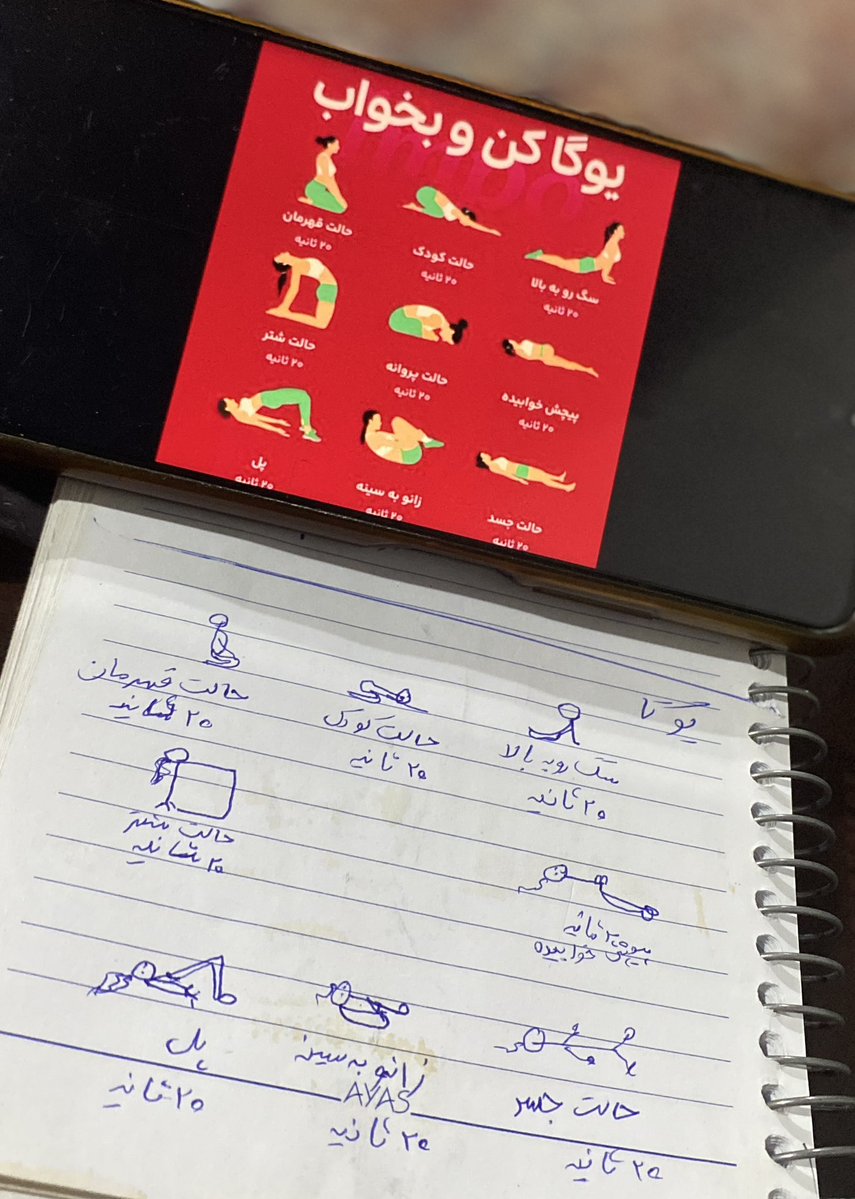 یوگا کن و بخواب
سگ رو به بالا
۲۰ ثانیه
حالت کودک
۲۰ ثانیه
حالت قهرمان
۲۰ ثانیه
پیچش خوابیده
۲۰ ثانیه
حالت پروانه
۲۰ ثانیه
حالت شتر
۲۰ ثانیه
حالت جسد
۲۰ ثانیه
زانو به سینه
۲۰ ثانیه
پل
۲۰ ثانیه
یوگا
سگ رو به بالا
۲۰ ثانیه
حالت کودک
۲۰ ثانیه
حالت قهرمان
۲۰ ثانیه
۲۰ ثانیه
خوابیده
حالت شتر
۲۰ ثانیه
حالت جسد
۲۰ ثانیه
زانو به سینه
AYAS
۲۰ ثانیه
پل
۲۰ ثانیه